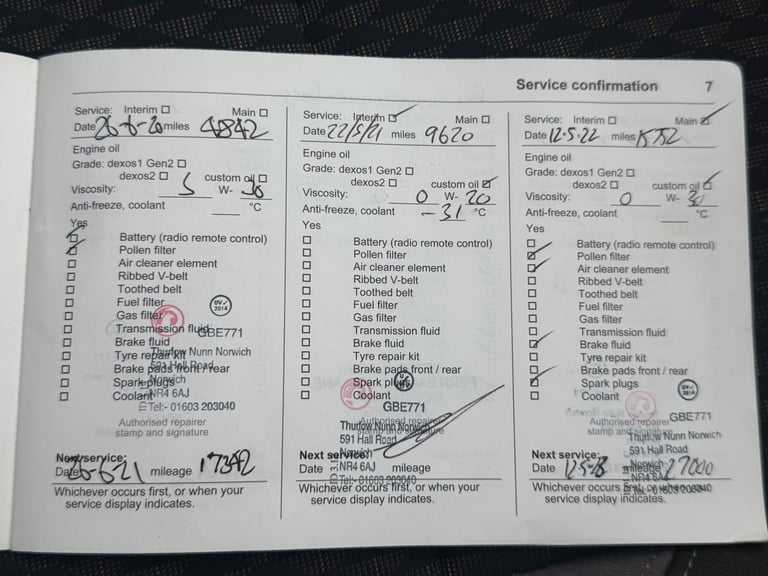 Service confirmation 7
Service: Interim ☐ Main ☐
Date 26-6-20 miles 4842
Engine oil
Grade: dexos1 Gen2 ☐
dexos2 ☐ custom oil ☐
Viscosity: 5 W- 30
Anti-freeze, coolant ___ °C
Yes
Battery (radio remote control)
Pollen filter
Air cleaner element
Ribbed V-belt
Toothed belt
Fuel filter
Gas filter
Transmission fluid
Brake fluid
Tyre repair kit
Brake pads front / rear
Spark plugs
Coolant
UV✓
2014
GBE771
Thurlow Nunn Norwich
591 Hall Road
Norwich
NR4 6AJ
Tel:- 01603 203040
Authorised repairer
stamp and signature
Next service:
Date 26-6-21 mileage 17342
Whichever occurs first, or when your
service display indicates.
Service: Interim ☑ Main ☐
Date 22/5/21 miles 9620
Engine oil
Grade: dexos1 Gen2 ☐
dexos2 ☐ custom oil ☑
Viscosity: 0 W- 20
Anti-freeze, coolant -31 °C
Yes
Battery (radio remote control)
Pollen filter
Air cleaner element
Ribbed V-belt
Toothed belt
Fuel filter
Gas filter
Transmission fluid
Brake fluid
Tyre repair kit
Brake pads front / rear
Spark plugs
Coolant
GBE771
Authorised repairer
stamp and signature
Thurlow Nunn Norwich
591 Hall Road
Norwich
NR4 6AJ
Tel:- 01603 203040
Next service:
Date mileage
Whichever occurs first, or when your
service display indicates.
Service: Interim ☐ Main ☑
Date 12-5-22 miles
Engine oil
Grade: dexos1 Gen2 ☐
dexos2 ☐ custom oil ☑
Viscosity: 0 W- 30
Anti-freeze, coolant ___ °C
Yes
Battery (radio remote control)
Pollen filter
Air cleaner element
Ribbed V-belt
Toothed belt
Fuel filter
Gas filter
Transmission fluid
Brake fluid
Tyre repair kit
Brake pads front / rear
Spark plugs
Coolant
UV✓
2014
GBE771
Authorised repairer
stamp and signature
Thurlow Nunn Norwich
591 Hall Road
Norwich
NR4 6AJ
Tel:- 01603 203040
Next service:
Date 12-5-23 mileage 27000
Whichever occurs first, or when your
service display indicates.